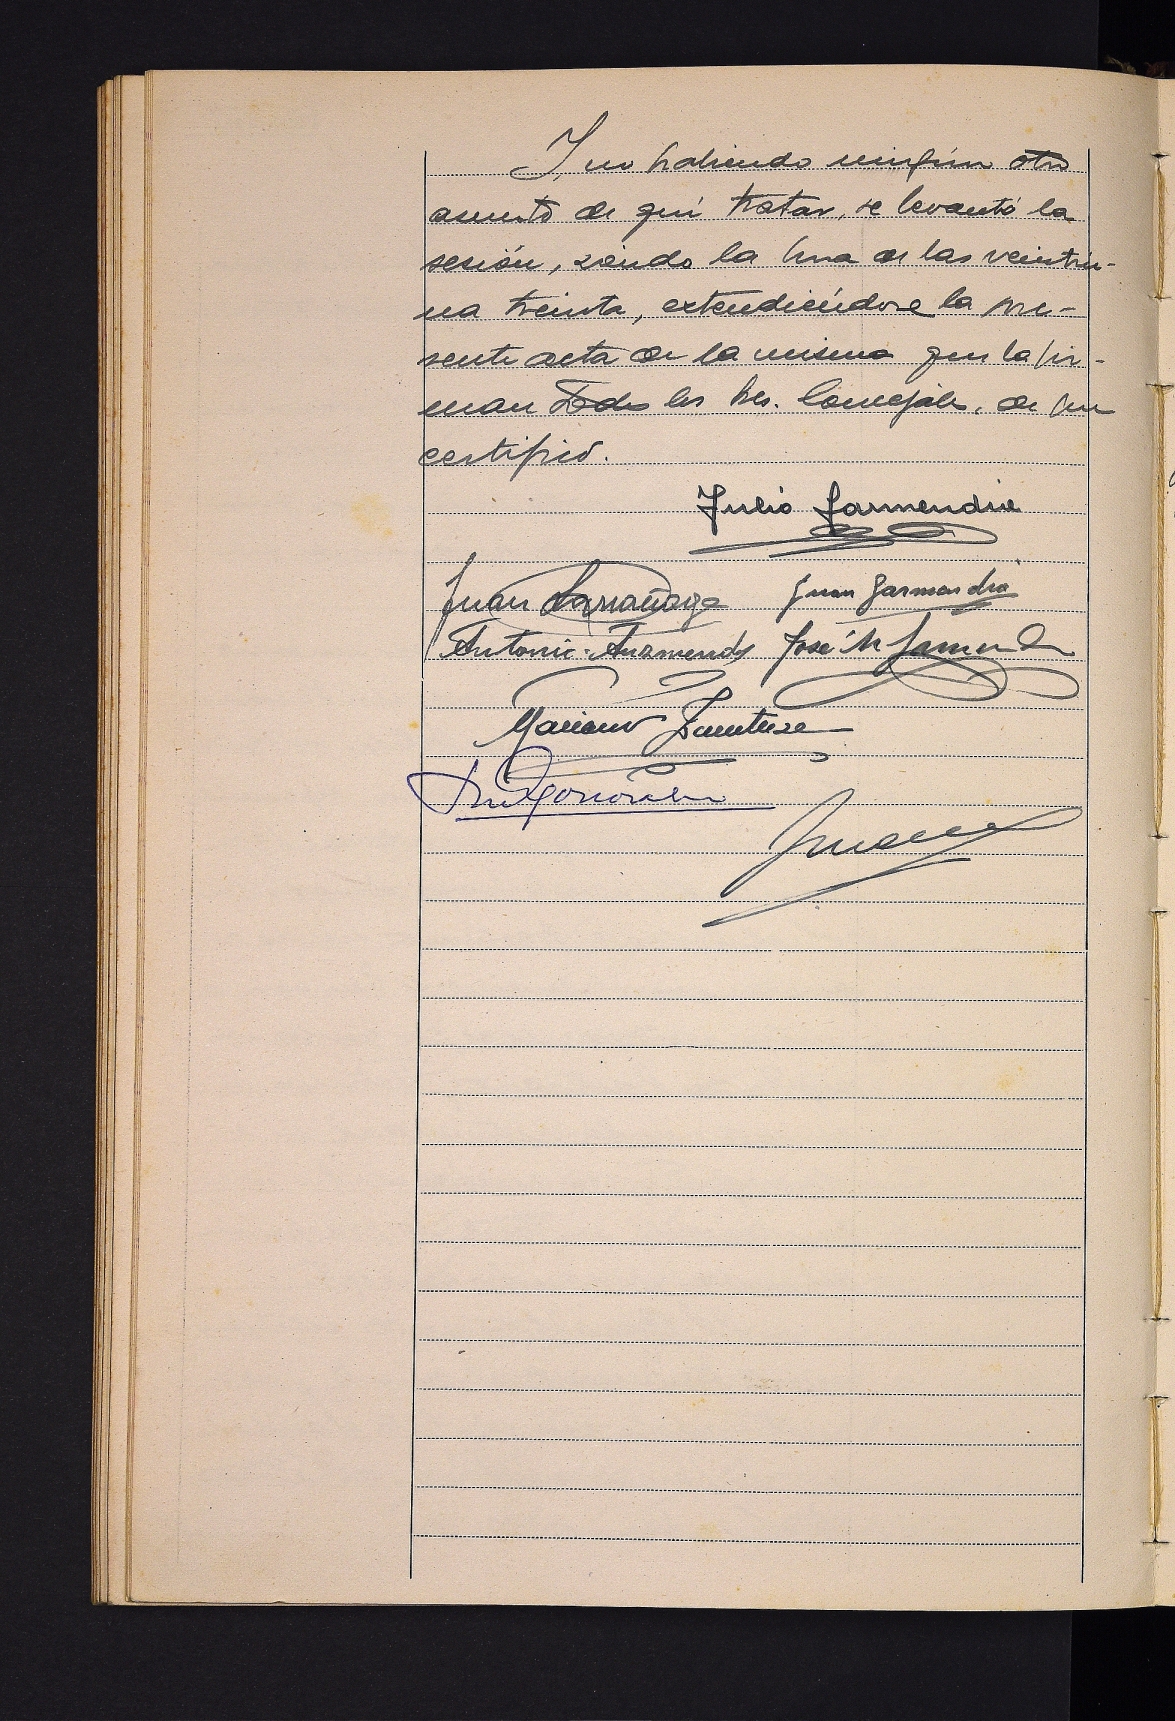 Y, no habiendo ningún otro
asunto de qué tratar, se levantó la
sesión, siendo la hora de las veintiu-
na treinta, extendiéndose la pre-
sente acta de la misma que la fir-
man todos los Sres. Concejales, de que
certifico.
Julio Garmendia
Juan Larrañaga Juan Garmendia
Antonio Auzmendi José M Garmendia
Mariano